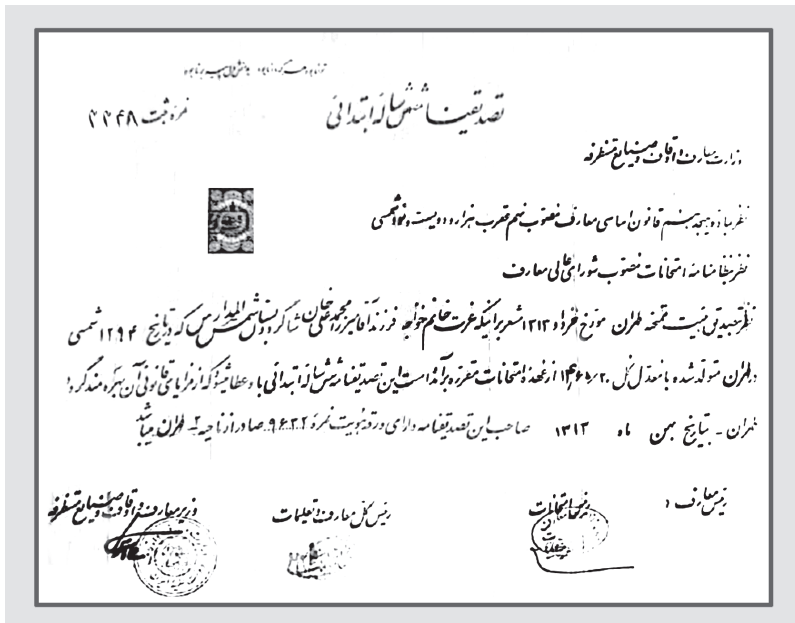 توانا بود هر که دانا بود
تصدیقنامه شش ساله ابتدائی
نمره ثبت ۴۴۴۸
وزارت معارف و اوقاف و صنایع مستظرفه
نظر بماده هیجدهم قانون اساسی معارف مصوب نهم عقرب هزار و دویست و نود شمسی
نظر بنظامنامه امتحانات مصوب شورای عالی معارف
نظر بتصدیق هیئت ممتحنه طهران مورخ خرداد ۱۳۱۳ مشعر براینکه عزت خانم خواجه فرزند آقا میرزا محمد علی خان شاگرد دبستان شمس المدارس که در تاریخ ۱۲۹۴ شمسی
در طهران متولد شده با معدل کل از عهده امتحانات مقرره برآمده است این تصدیقنامه شش ساله ابتدائی باو عطا میشود که از مزایای قانونی آن بهره‌مند گردد
طهران - بتاریخ بهمن ماه ۱۳۱۳ صاحب این تصدیقنامه دارای ورقه هویت نمره ۹۶۲۲ صادر از ناحیه ۲ طهران میباشد
رئیس معارف
رئیس امتحانات
رئیس کل معارف و تعلیمات
وزیر معارف و اوقاف و صنایع مستظرفه